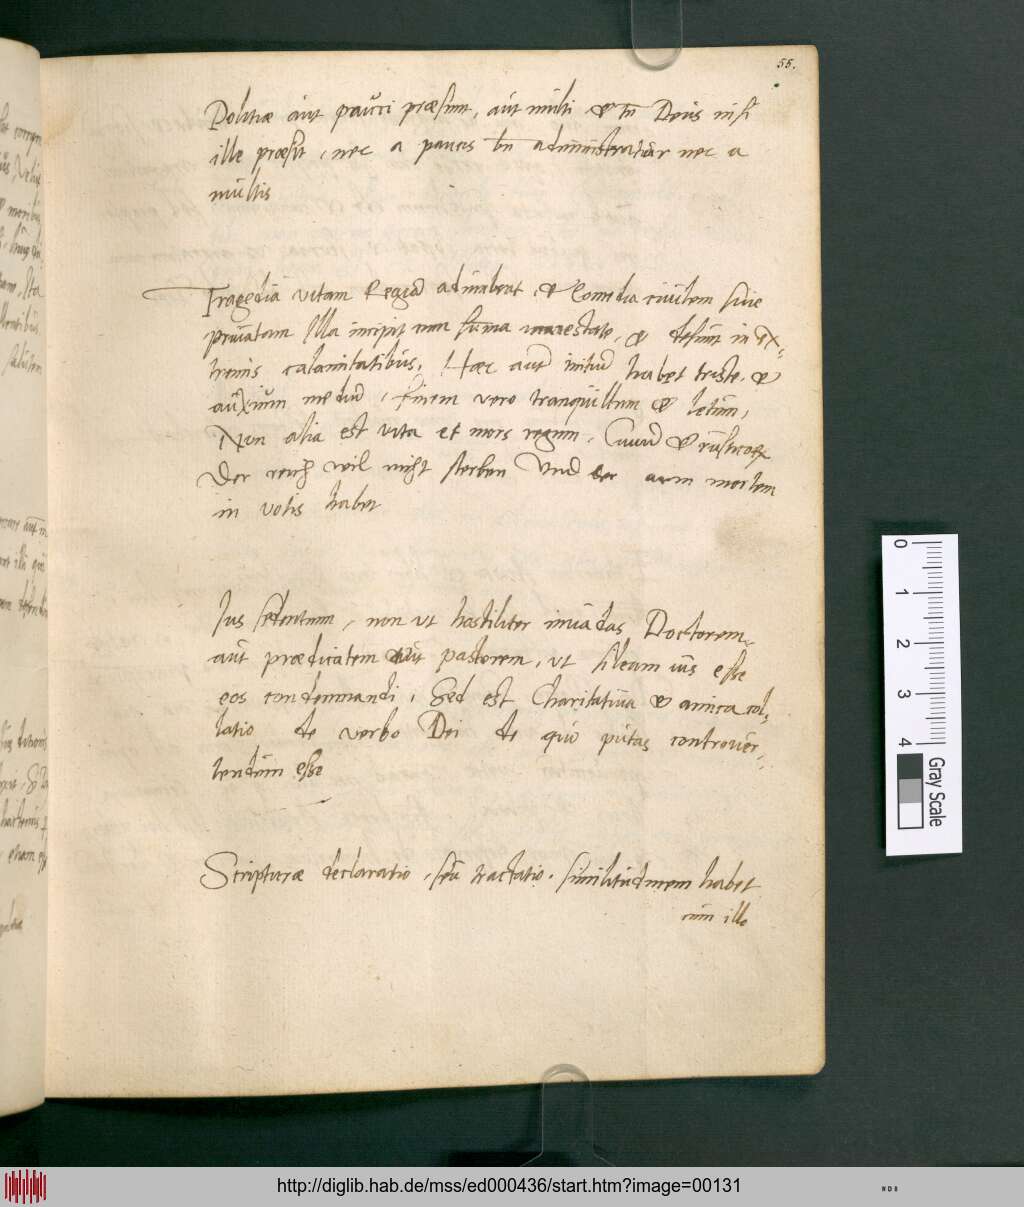 55.
Politiæ aut pauci præsunt, aut multi & tñ Deus nisi
ille præsit, nec a paucis bñ administratur nec a
multis
Tragedia vitam Regiã adumbrat, & Comedia civilem sive
privatam Illa incipit cum suma maiestate, & desinit in ex-
tremis calamitatibus, Hæc aut initiũ habet triste &
anxium mediũ, Finem vero tranquillum & letum,
Non alia est vita et mors regum, Civiũ & rusticorum
Der reich wil nicht sterben Und der arm mortem
in votis habet
Ius sedentium, non ut hostiliter invadas Doctorem
aut prædicatem aut pastorem, ut sileam ius esse
eos condemnandi, Sed est Charitativa & amica col-
latio de verbo Dei de quo putas controver-
tendum esse
Scripturæ declaratio, seu tractatio, similitudinem habet
cum illo
0
1
2
3
4
Gray Scale
http://diglib.hab.de/mss/ed000436/start.htm?image=00131